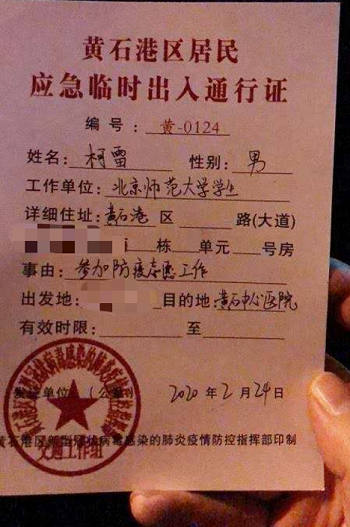 黄石港区居民
应急临时出入通行证
编号：黄-0124
姓名：柯雷 性别：男
工作单位：北京师范大学学生
详细住址：黄石港区 路(大道)
栋 单元 号房
事由：参加防疫志愿工作
出发地： 目的地：黄石中心医院
有效时限： 至
发证单位（公章
2020年2月24日
黄石港区新型冠状病毒感染的肺炎疫情防控指挥部印制
交通工作组